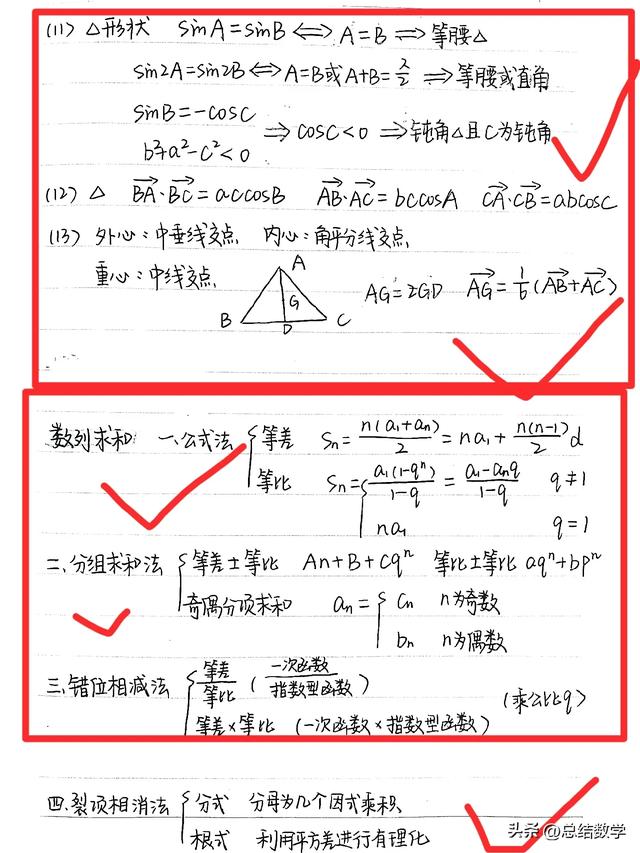 (11) △形状 sinA=sinB ⟺ A=B ⟹ 等腰△
sin2A=sin2B ⟺ A=B或A+B=π/2 ⟹ 等腰或直角
sinB=-cosC
b²+a²-c²<0
⟹ cosC<0 ⟹ 钝角△且C为钝角
(12) △ BA→·BC→=accosB AB→·AC→=bccosA CA→·CB→=abcosC
(13) 外心:中垂线交点 内心:角平分线交点
重心:中线交点
A
G
B D C
AG=2GD AG→=1/6(AB→+AC→)
数列求和 一.公式法 { 等差 Sn=n(a₁+an)/2=na₁+n(n-1)/2 d
等比 Sn={ a₁(1-qⁿ)/1-q=a₁-anq/1-q q≠1
na₁ q=1
二.分组求和法 { 等差±等比 An+B+Cqⁿ 等比±等比 aqⁿ+bpⁿ
奇偶分项求和 an={ cn n为奇数
bn n为偶数
三.错位相减法 { 等差/等比 (一次函数/指数型函数)
等差×等比 (一次函数×指数型函数)
(乘公比q)
四.裂项相消法 { 分式 分母为几个因式乘积
根式 利用平方差进行有理化
头条@总结数学